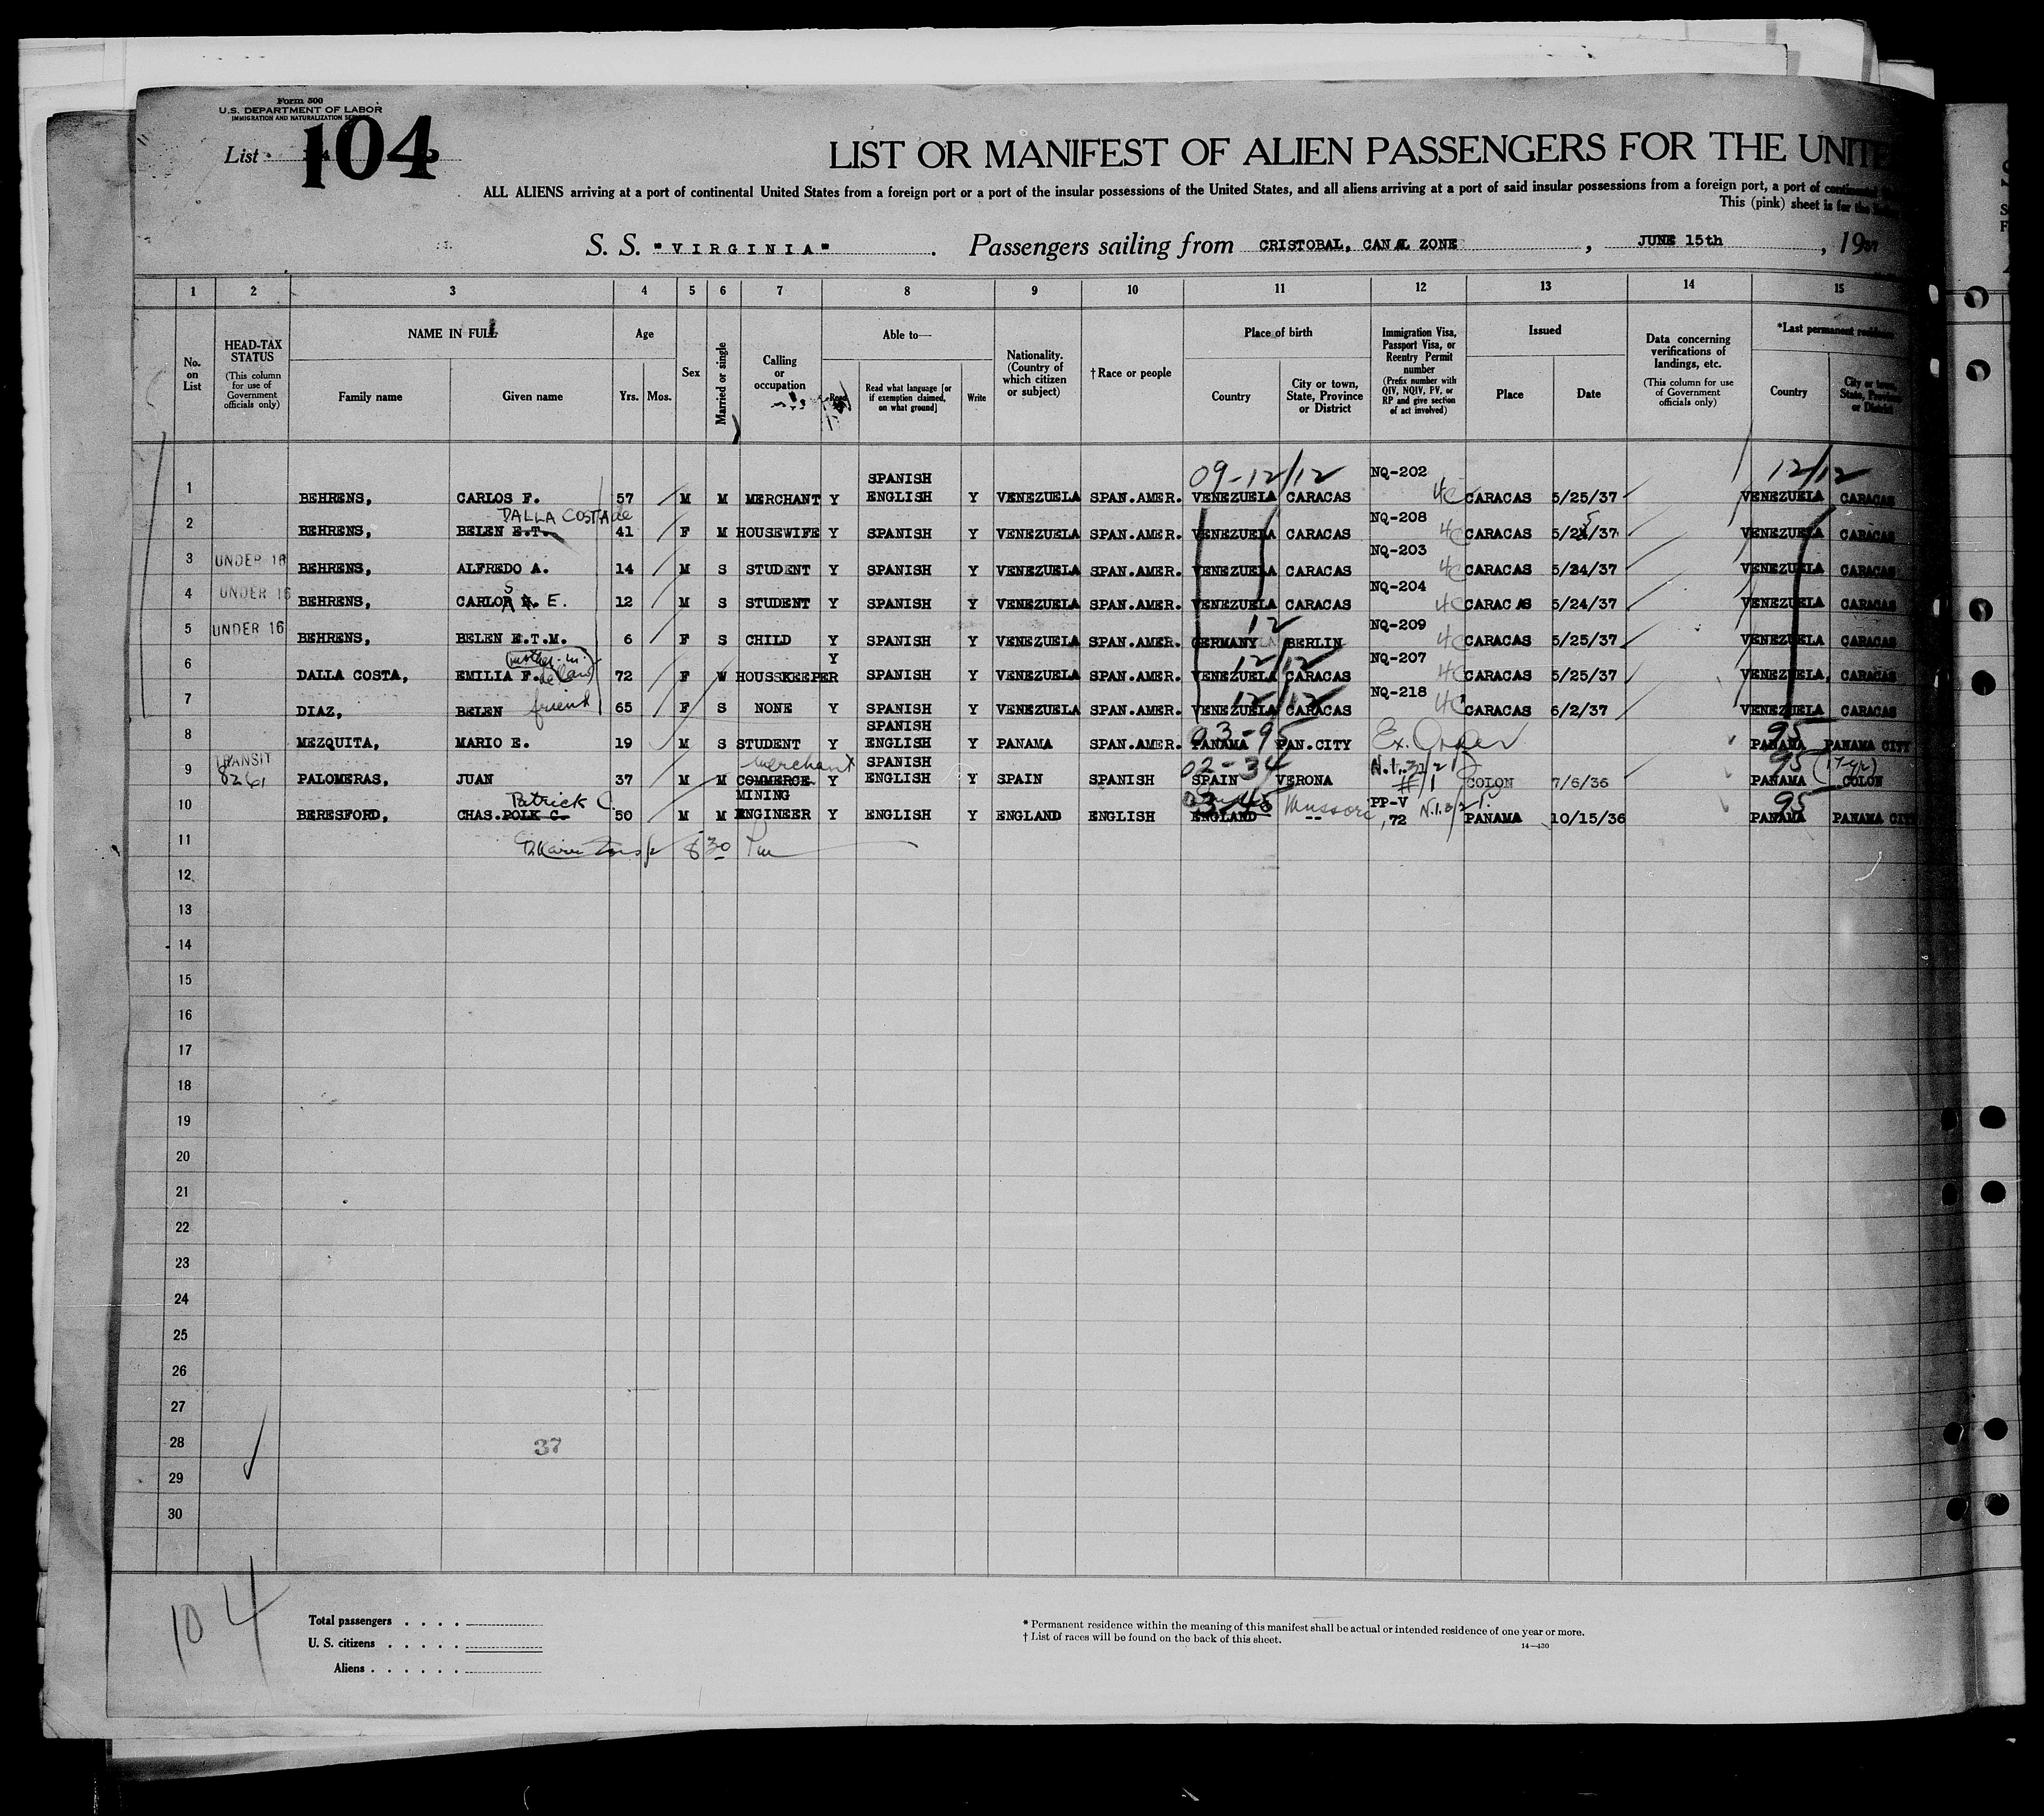 Form 500
U.S. DEPARTMENT OF LABOR
IMMIGRATION AND NATURALIZATION
List 104
LIST OR MANIFEST OF ALIEN PASSENGERS FOR THE UNITE
ALL ALIENS arriving at a port of continental United States from a foreign port or a port of the insular possessions of the United States, and all aliens arriving at a port of said insular possessions from a foreign port, a port of continental
This (pink) sheet is for the
S. S. "VIRGINIA" . Passengers sailing from CRISTOBAL, CANAL ZONE , JUNE 15th , 1937
1 2 3 4 5 6 7 8 9 10 11 12 13 14 15
No. on List
HEAD-TAX STATUS (This column for use of Government officials only)
NAME IN FULL
Family name
Given name
Age
Yrs.
Mos.
Sex
Married or single
Calling or occupation
Able to—
Read
Read what language [or if exemption claimed, on what ground]
Write
Nationality. (Country of which citizen or subject)
† Race or people
Place of birth
Country
City or town, State, Province or District
Immigration Visa, Passport Visa, or Reentry Permit number (Prefix number with QIV, NQIV, PV, or RP and give section of act involved)
Issued
Place
Date
Data concerning verifications of landings, etc. (This column for use of Government officials only)
*Last permanent residence
Country
City or town, State, Province or District
09-12/12 12/12
1 BEHRENS, CARLOS F. 57 M M MERCHANT Y SPANISH ENGLISH Y VENEZUELA SPAN.AMER. VENEZUELA CARACAS NQ-202 4C CARACAS 5/25/37 VENEZUELA CARACAS
DALLA COSTA de
2 BEHRENS, BELEN E.T. 41 F M HOUSEWIFE Y SPANISH Y VENEZUELA SPAN.AMER. VENEZUELA CARACAS NQ-208 4C CARACAS 5/25/37 VENEZUELA CARACAS
3 UNDER 16 BEHRENS, ALFREDO A. 14 M S STUDENT Y SPANISH Y VENEZUELA SPAN.AMER. VENEZUELA CARACAS NQ-203 4C CARACAS 5/24/37 VENEZUELA CARACAS
4 UNDER 16 BEHRENS, CARLOS E. 12 M S STUDENT Y SPANISH Y VENEZUELA SPAN.AMER. VENEZUELA CARACAS NQ-204 4C CARACAS 5/24/37 VENEZUELA CARACAS
5 UNDER 16 BEHRENS, BELEN E.T.M. 6 F S CHILD Y SPANISH Y VENEZUELA SPAN.AMER. 12 GERMANY BERLIN NQ-209 4C CARACAS 5/25/37 VENEZUELA CARACAS
6 DALLA COSTA, EMILIA F. de mother-in-law 72 F W HOUSSKEEPER Y SPANISH Y VENEZUELA SPAN.AMER. 12/12 VENEZUELA CARACAS NQ-207 4C CARACAS 5/25/37 VENEZUELA, CARACAS
7 DIAZ, BELEN friend 65 F S NONE Y SPANISH Y VENEZUELA SPAN.AMER. 12/12 VENEZUELA CARACAS NQ-218 4C CARACAS 6/2/37 VENEZUELA CARACAS
8 MEZQUITA, MARIO E. 19 M S STUDENT Y SPANISH ENGLISH Y PANAMA SPAN.AMER. 03-95 PANAMA PAN.CITY Ex. Order 95 PANAMA PANAMA CITY
9 TRANSIT 8261 PALOMERAS, JUAN 37 M M COMMERCE merchant Y SPANISH ENGLISH Y SPAIN SPANISH 02-34 SPAIN VERONA COLON 7/6/36 95 PANAMA COLON
10 BERESFORD, CHAS. POLK C. Patrick C. 50 M M MINING ENGINEER Y ENGLISH Y ENGLAND ENGLISH 03-45 ENGLAND -- PP-V 72 PANAMA 10/15/36 95 PANAMA PANAMA CITY
11 8 30 Pm
12
13
14
15
16
17
18
19
20
21
22
23
24
25
26
27
28 37
29
30
104
Total passengers
U. S. citizens
Aliens
* Permanent residence within the meaning of this manifest shall be actual or intended residence of one year or more.
† List of races will be found on the back of this sheet.
14—430